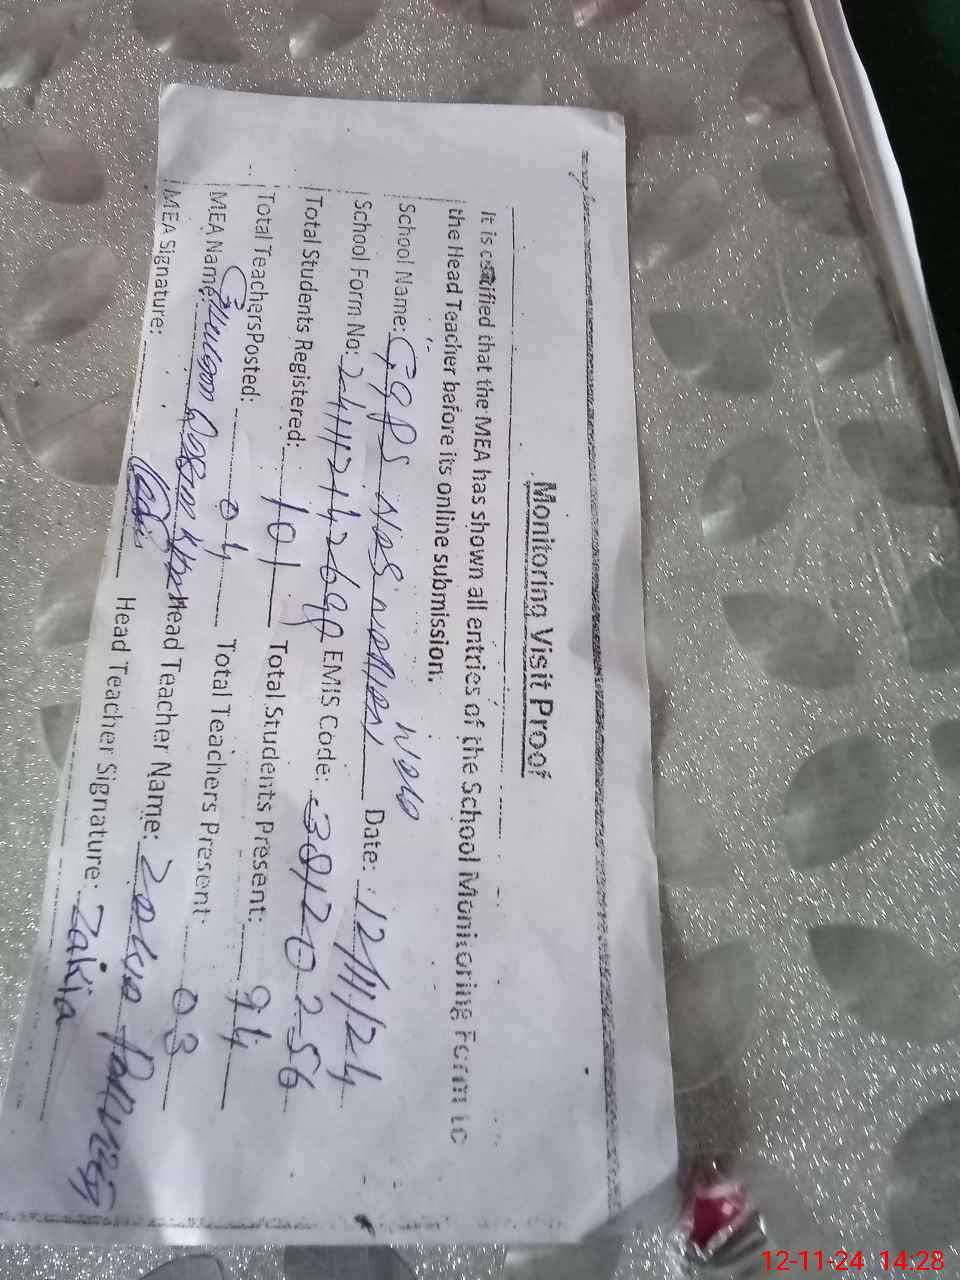 Monitoring Visit Proof
It is certified that the MEA has shown all entries of the School Monitoring Form to
the Head Teacher before its online submission.
School Name: GGPS Date: 12/11/24
School Form No: EMIS Code: 38120256
Total Students Registered: 101 Total Students Present: 94
Total Teachers Posted: 04 Total Teachers Present: 03
MEA Name: Head Teacher Name: Zakia Parveen
MEA Signature: Head Teacher Signature: Zakia
12-11-24 14:28